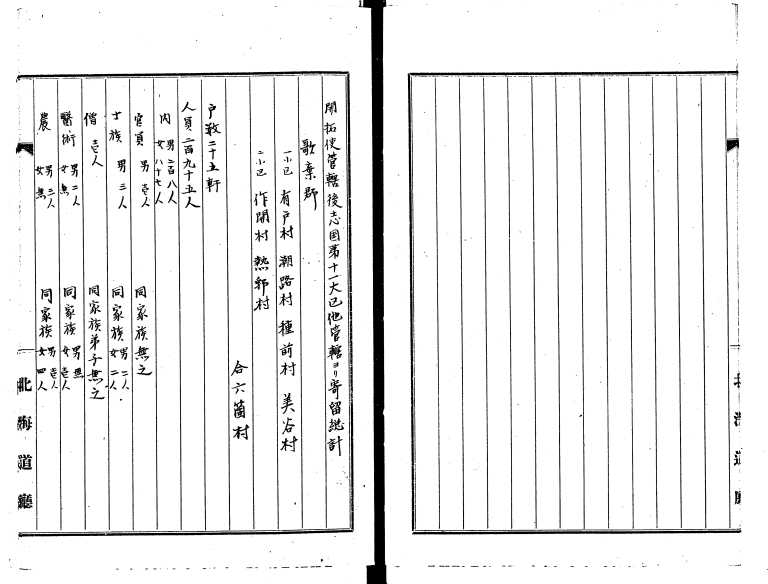 開拓使管轄後志国第十一大区他管轄ヨリ寄留総計
歌棄郡
一小区 有戸村 潮路村 種前村 美谷村
二小区 作開村 熱郛村
合六箇村
戸数二十五軒
人員二百九十五人
内 男二百八人
女八十七人
官員 男壱人 同家族無之
士族 男三人 同家族 男二人
女二人
僧 壱人 同家族弟子無之
醫術 男二人
女無 同家族 男無
女壱人
農 男三人
女無 同家族 男壱人
女四人
北海道廳
北海道廳